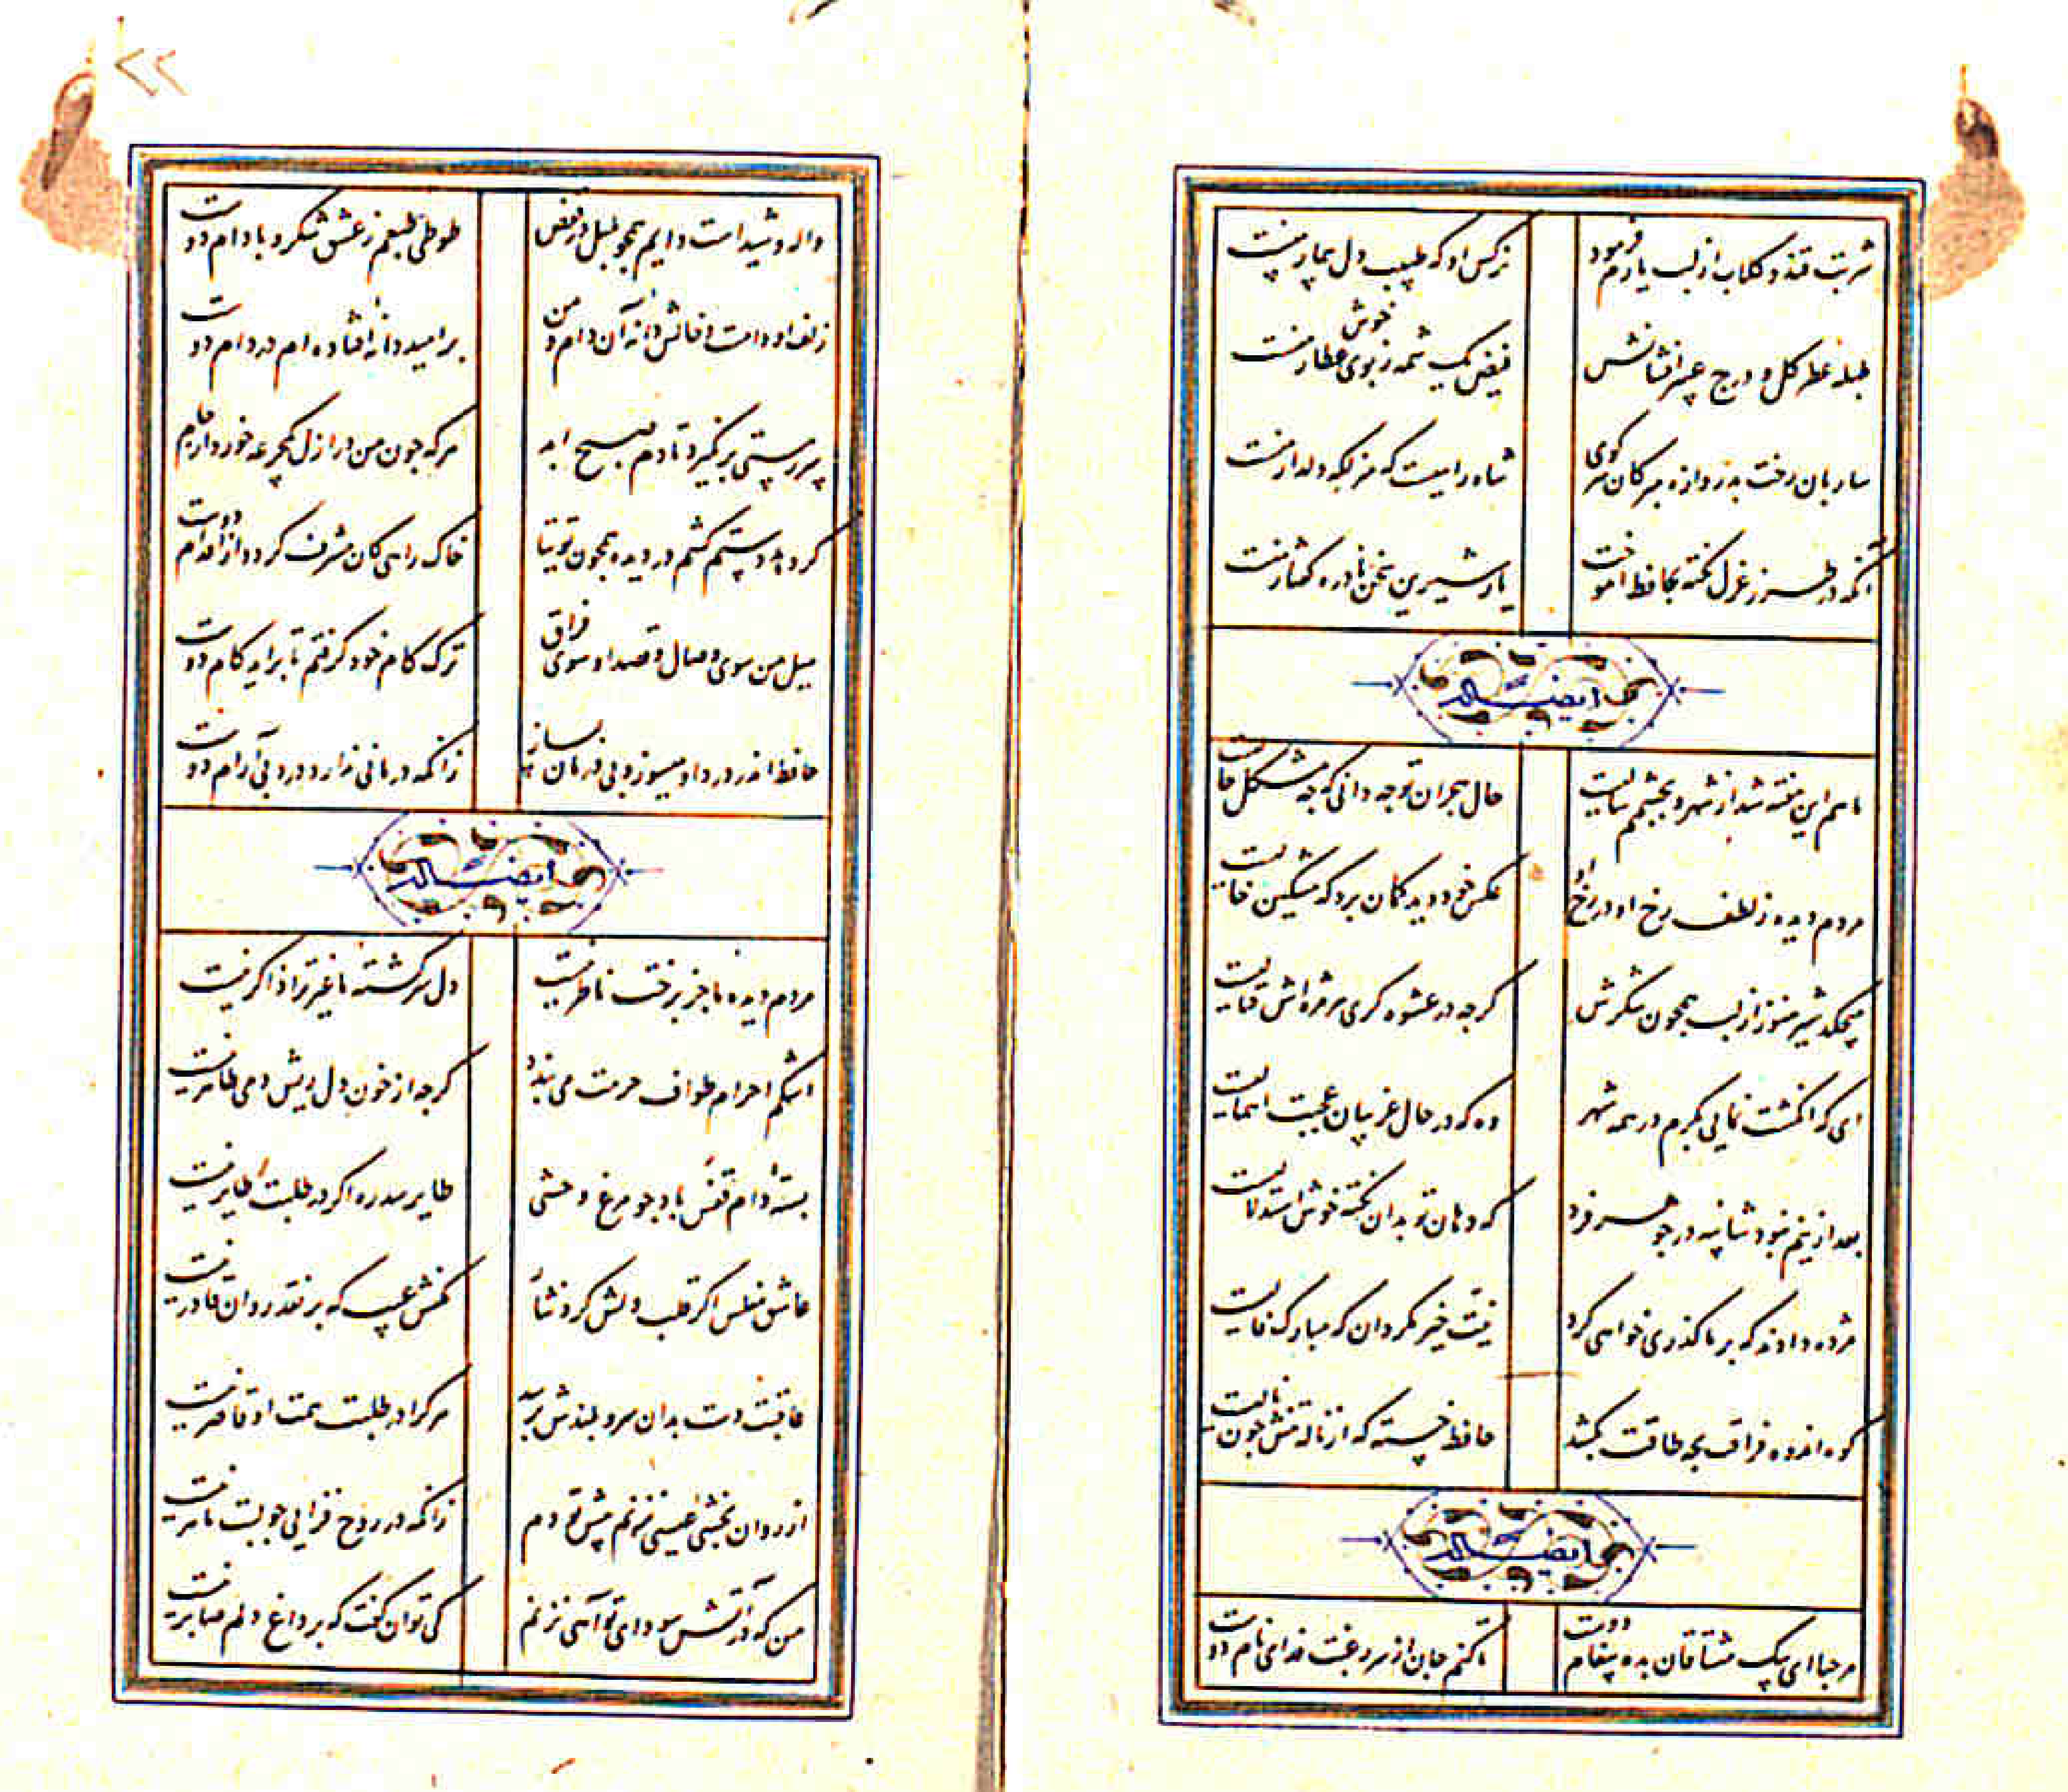 شربت قند و گلاب از لب یارم فرمود نرکس او که طبیب دل بیمار منست
طبله عطر کل و درج عبیر افشانش فیض یک شمه ز بوی خوش عطار منست
ساربان رخت بدروازه مبر کان سر کوی شاه راهیست که منزلکه دلدار منست
آنکه در طرز غزل نکته بحافظ آموخت یار شیرین سخن نادره کفتار منست
ایضاله
ماهم این هفته شد از شهر و بچشمم سالیست حال هجران تو چه دانی که چه مشکل حالیست
مردم دیده ز لطف رخ او در رخ او عکس خود دید کمان برد که مشکین خالیست
میچکد شیر هنوز از لب همچون شکرش کرچه در عشوه کری هر مژه اش قتالیست
ای که انکشت نمایی بکرم در همه شهر وه که در حال غریبان عجبت اهمالیست
بعد ازینم نبود شائبه در جوهر فرد که دهان تو بدان نکته خوش استدلالیست
مژده دادند که بر ما کذری خواهی کرد نیت خیر مکردان که مبارک فالیست
کوه اندوه فراقت بچه طاقت بکشد حافظ خسته که از ناله تنش چون نالیست
ایضاله
مرحبا ای پیک مشتاقان بده پیغام دوست تا کنم جان از سر رغبت فدای نام دوست
واله و شیداست دایم همچو بلبل در قفص طوطی طبعم ز عشق شکر و بادام دوست
زلف او دامست و خالش دانه آن دام و من بر امید دانه افتاده ام در دام دوست
سر ز مستی بر نکیرد تا دم صبح ابد هر که چون من در ازل یکجرعه خورد از جام دوست
کر دهد دستم کشم در دیده همچون توتیا خاک راهی کان مشرف کردد از اقدام دوست
میل من سوی وصال و قصد او سوی فراق ترک کام خود کرفتم تا براید کام دوست
حافظ اندر درد او میسوز و بی درمان بساز زانکه درمانی ندارد درد بی آرام دوست
ایضاله
مردم دیده ما جز برخت ناظر نیست دل سرکشته ما غیر ترا ذاکر نیست
اشکم احرام طواف حرمت می بندد کرچه از خون دل ریش دمی طاهر نیست
بسته دام قفس باد چو مرغ وحشی طایر سدره اکر در طلبت طایر نیست
عاشق مفلس اکر قلب دلش کرد نثار مکنش عیب که بر نقد روان قادر نیست
عاقبت دست بدان سرو بلندش برسد هر کرا در طلبت همت او قاصر نیست
از روان بخشی عیسی نزنم پیش تو دم زانکه در روح فزایی چو لبت ماهر نیست
من که در آتش سودای تو آهی نزنم کی توان کفت که بر داغ دلم صابر نیست